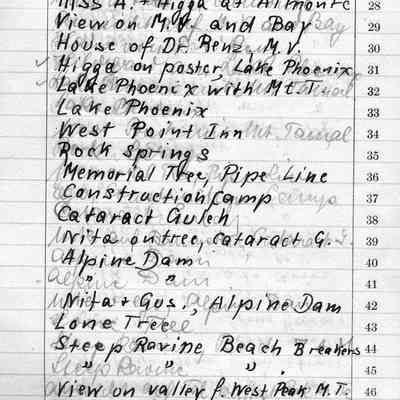 Miss A. + Higga at Almonte 28
View on M.V. and Bay 29
House of Dr. Renz, M.V. 30
✓ Higga on poster, Lake Phoenix 31
✓ Lake Phoenix with Mt. T. 32
Lake Phoenix 33
West Point Inn 34
Rock Springs 35
Memorial Tree, Pipe Line 36
Construction Camp 37
Cataract Gulch 38
Nita on tree, Cataract G. 39
Alpine Dam 40
" " 41
Nita + Gus., Alpine Dam 42
Lone Tree 43
Steep Ravine Beach Breakers 44
" " " . 45
View on valley f. West Peak M.T. 46